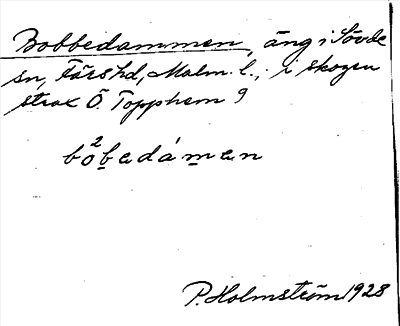 Bobbedammen, äng i Sövde
sn, Färs hd, Malm. l.; i skogen
strax Ö. Topphem 9
bo²bedámen
P. Holmström 1928